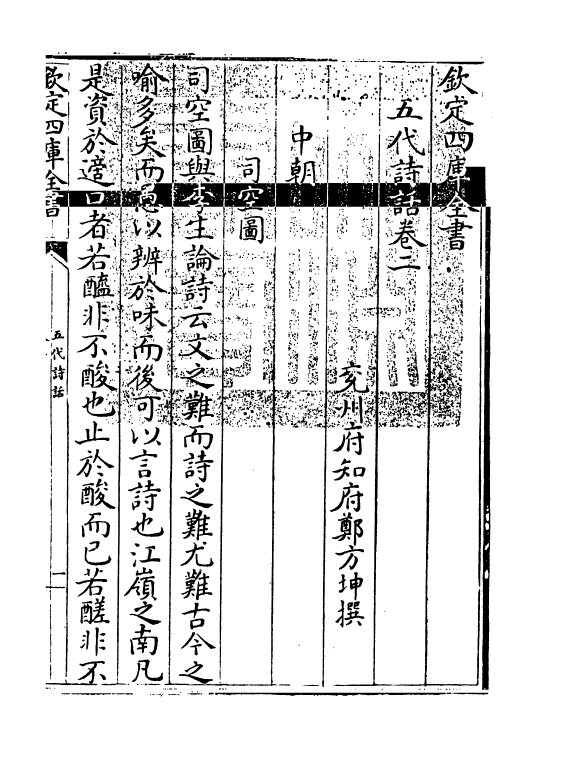 欽定四庫全書
五代詩話卷二
兖州府知府鄭方坤撰
中朝
司空圖
司空圖與李生論詩云文之難而詩之難尤難古今之
喻多矣而愚以辨於味而後可以言詩也江嶺之南凡
是資於適口者若醯非不酸也止於酸而已若醝非不
欽定四庫全書
五代詩話
一